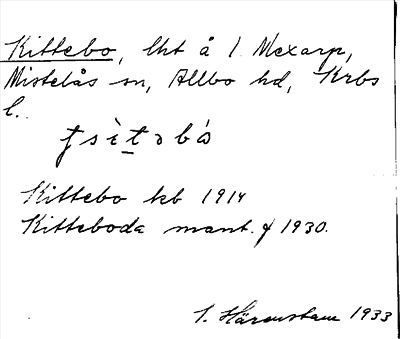 Kittebo, lht å 1 Mexarp,
Mistelås sn, Allbo hd, Krbs
l.
Kittebo kb 1914
Kitteboda mant. 1930.
1933